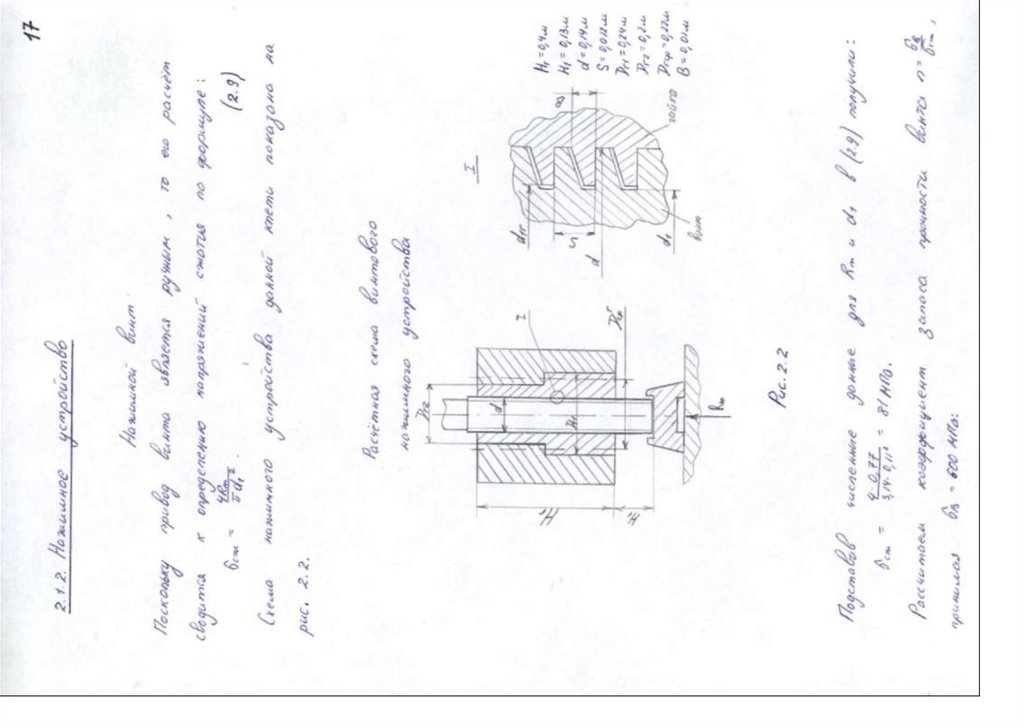 17
2.1.2. Нажимное устройство
Нажимной винт.
Поскольку привод винта является ручным, то его расчёт
сводится к определению напряжений сжатия по формуле:
σсж = 4Rm / π d₁² . (2.9)
Схема нажимного устройства данной клети показана на
рис. 2.2.
Расчётная схема винтового
нажимного устройства
Dг2
d
I
Dг
Dср
H
H₁
Rm
I
dвг
S
d
d₁
B
винт
гайка
H₁ = 0,4м
H₁ = 0,13м
d = 0,14м
S = 0,012м
Dг1 = 0,24м
Dг2 = 0,2м
Dгср = 0,22м
B = 0,01м
Рис. 2.2
Подставив численные данные для Rm и d₁ в (2.9) получили:
σсж = 4·0,77 / 3,14·0,11² = 81 МПа.
Рассчитаем коэффициент запаса прочности винта n = σв / σсж,
принимая σв = 600 МПа: